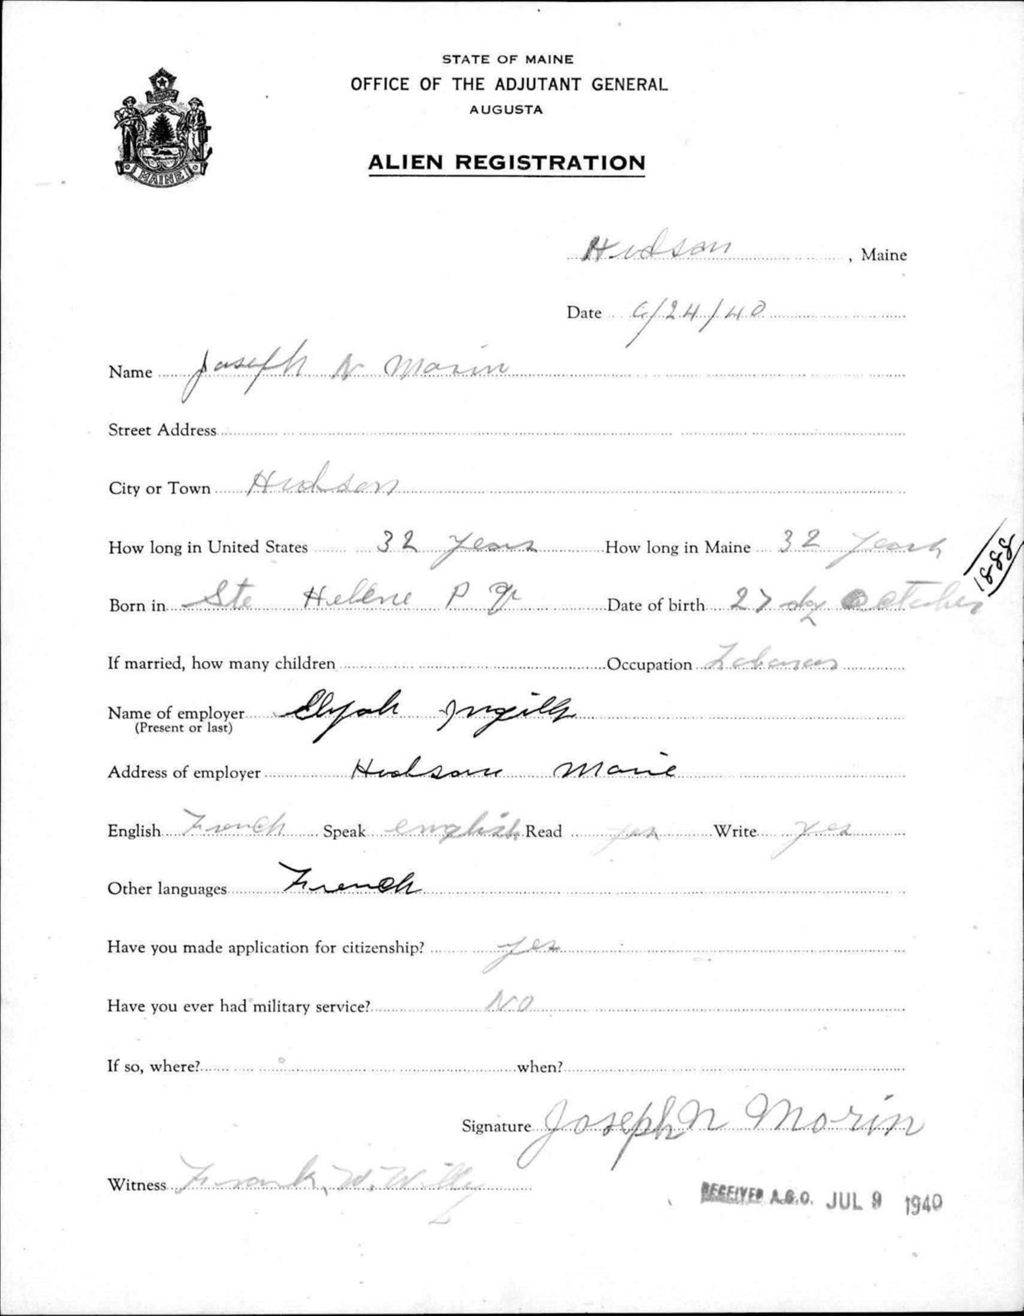 STATE OF MAINE
OFFICE OF THE ADJUTANT GENERAL
AUGUSTA
MAINE
ALIEN REGISTRATION
Hudson, Maine
Date 6/24/40
Name Joseph N Morin
Street Address
City or Town Hudson
How long in United States 32 years How long in Maine 32 years
1888
Born in Ste Hellene P Q Date of birth 27 day October
If married, how many children Occupation
Name of employer Elijah
(Present or last)
Address of employer Hudson Maine
English French Speak english Read yes Write yes
Other languages French
Have you made application for citizenship? yes
Have you ever had military service? No
If so, where? when?
Signature Joseph N Morin
Witness Frank. W. Willey
RECEIVED A.G.O. JUL 9 1940